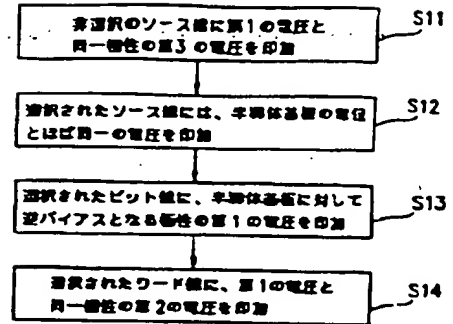 非選択のソース線に第1の電圧と
同一極性の第3の電圧を印加
S11
選択されたソース線には、半導体基板の電位
とほぼ同一の電圧を印加
S12
選択されたビット線に、半導体基板に対して
逆バイアスとなる極性の第1の電圧を印加
S13
選択されたワード線に、第1の電圧と
同一極性の第2の電圧を印加
S14